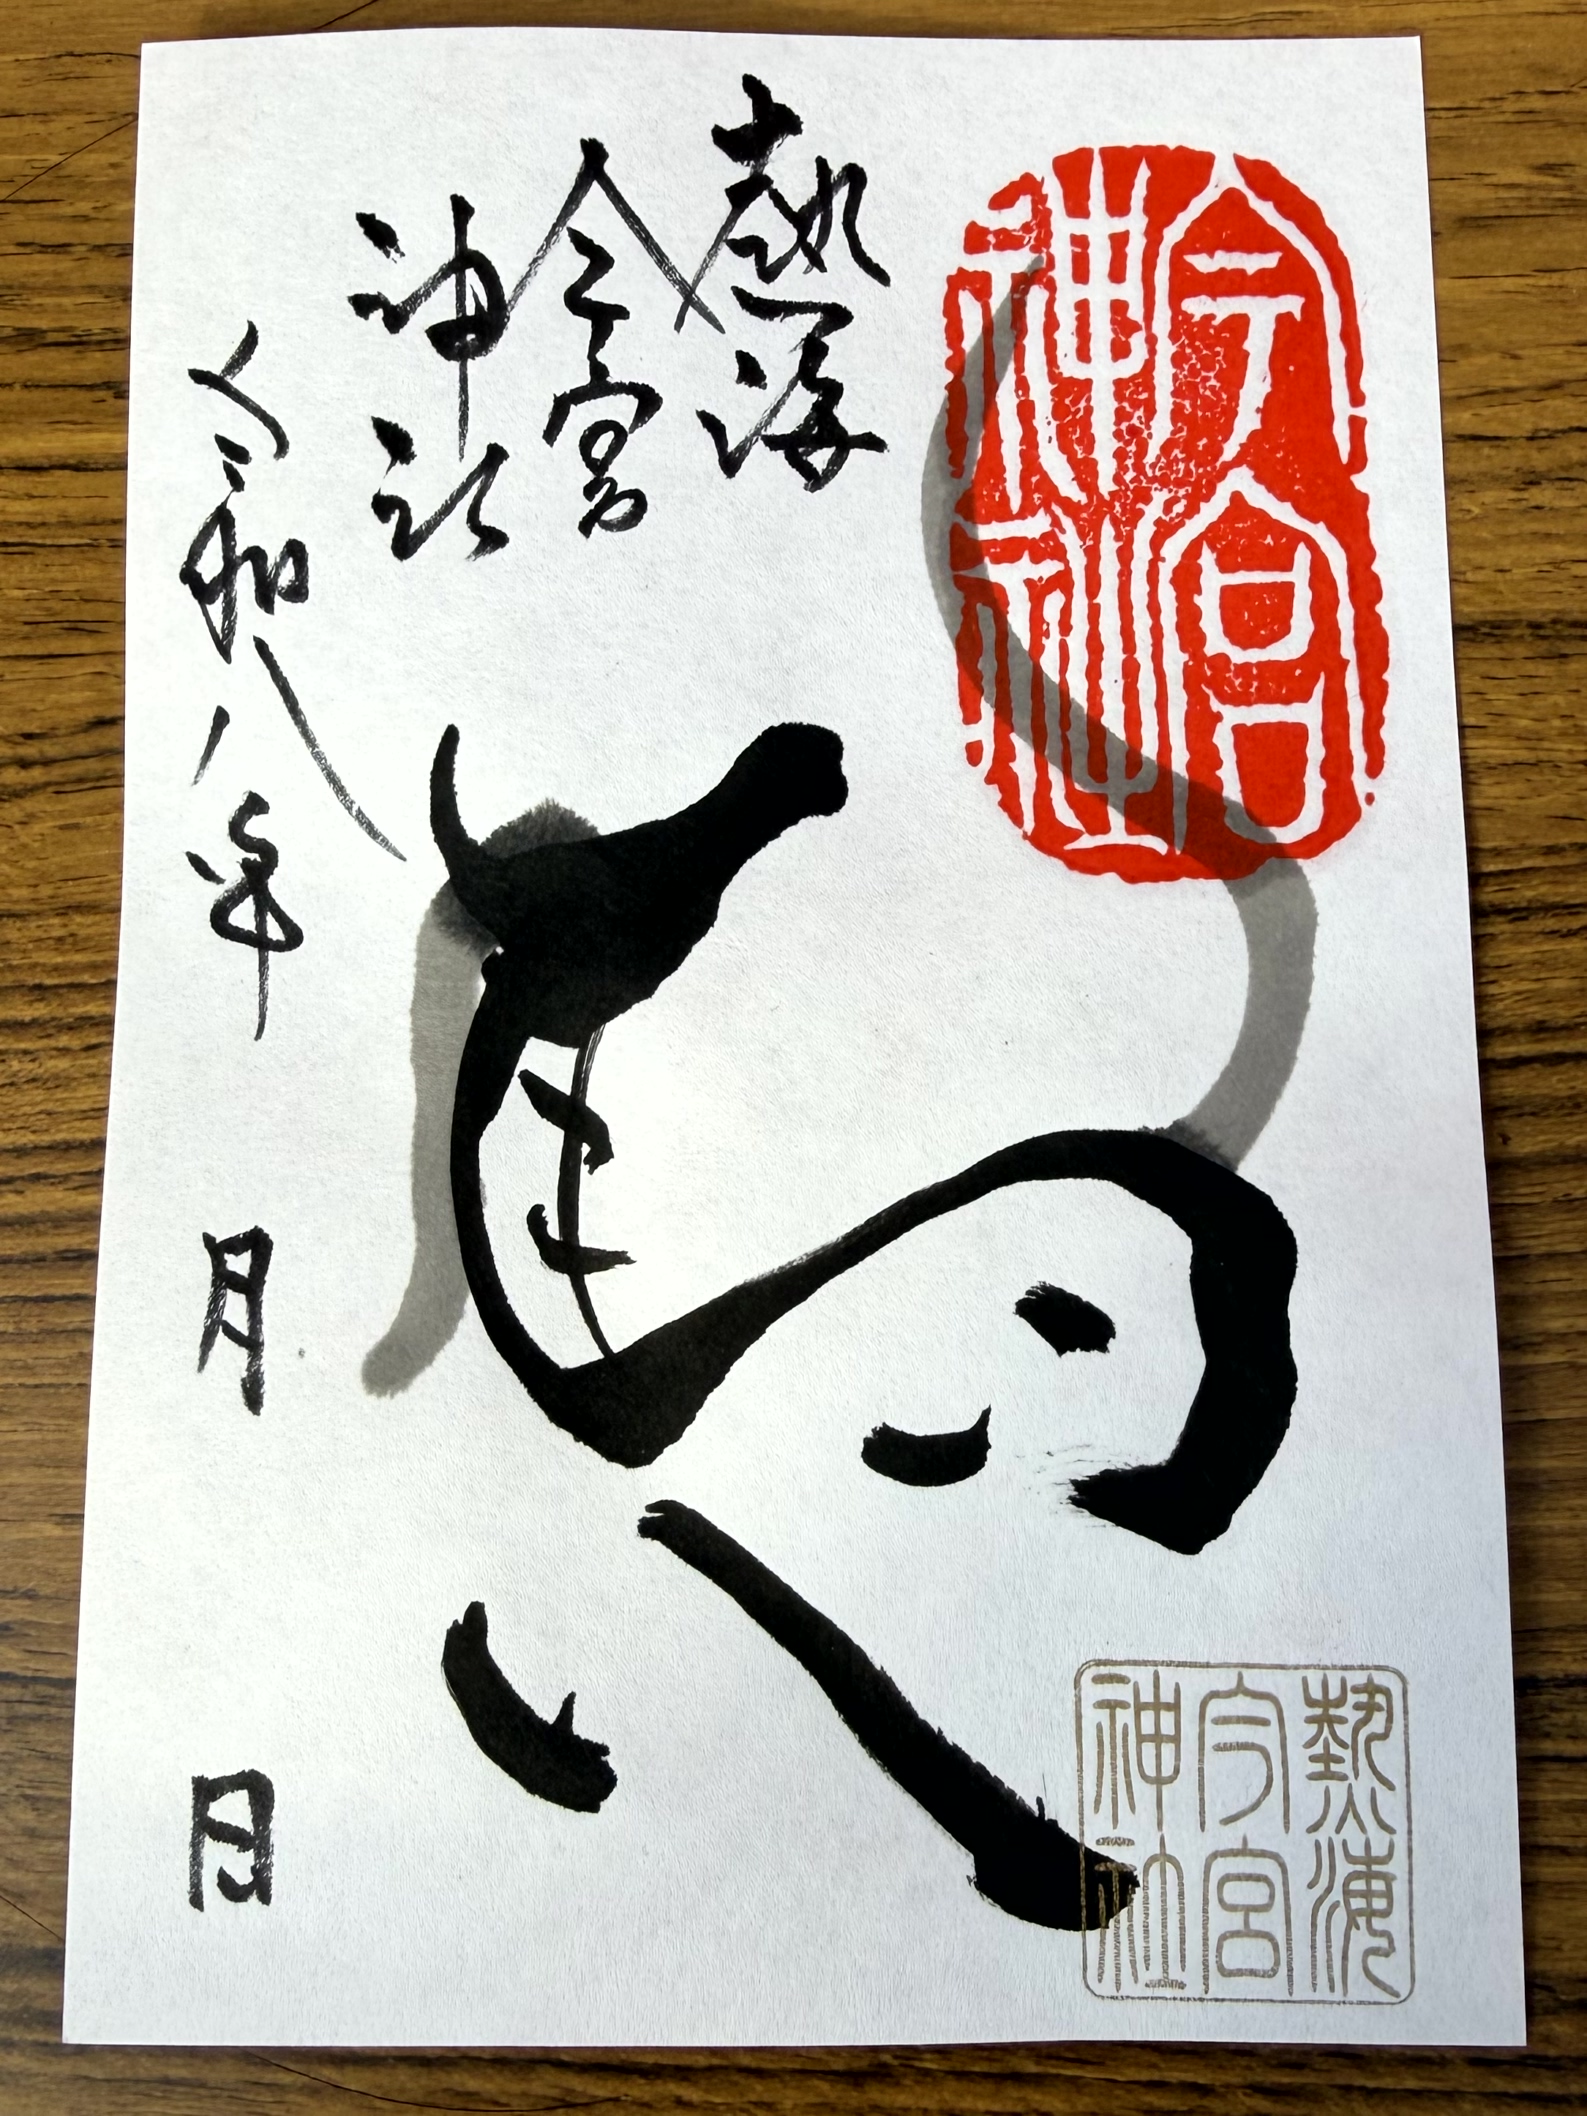 今宮
神社
熱海
今宮
神社
馬
令和八年 月 日
熱海
今宮
神社